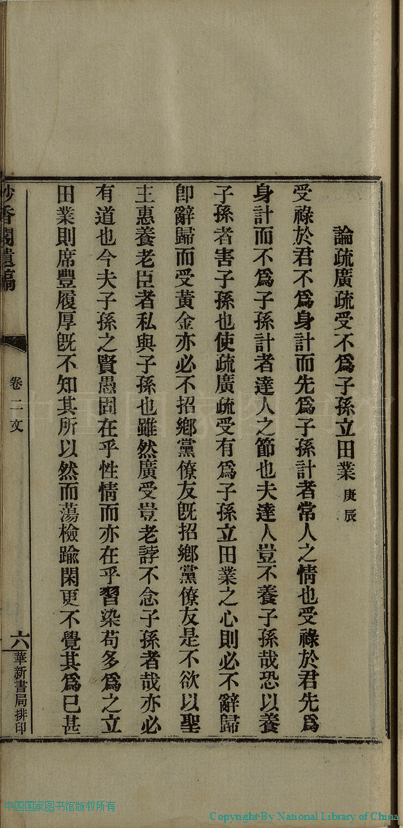 論疏廣疏受不爲子孫立田業 庚辰
受祿於君不爲身計而先爲子孫計者常人之情也受祿於君先爲
身計而不爲子孫計者達人之節也夫達人豈不養子孫哉恐以養
子孫者害子孫也使疏廣疏受有爲子孫立田業之心則必不辭歸
卽辭歸而受黃金亦必不招鄉黨僚友旣招鄉黨僚友是不欲以聖
主惠養老臣者私與子孫也雖然廣受豈老誖不念子孫者哉亦必
有道也今夫子孫之賢愚固在乎性情而亦在乎習染苟多爲之立
田業則席豐履厚旣不知其所以然而蕩檢踰閑更不覺其爲已甚
妙香閣遺稿
卷二文
六
華新書局排印
中国国家图书馆版权所有
Copyright By National Library of China